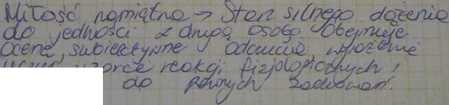 Miłość namiętna → Stan silnego dążenia
do jedności z drugą osobą. Obejmuje
ocenę, subiektywne odczucia, złożone
wzorce reakcji fizjologicznych i
do pewnych zachowań.